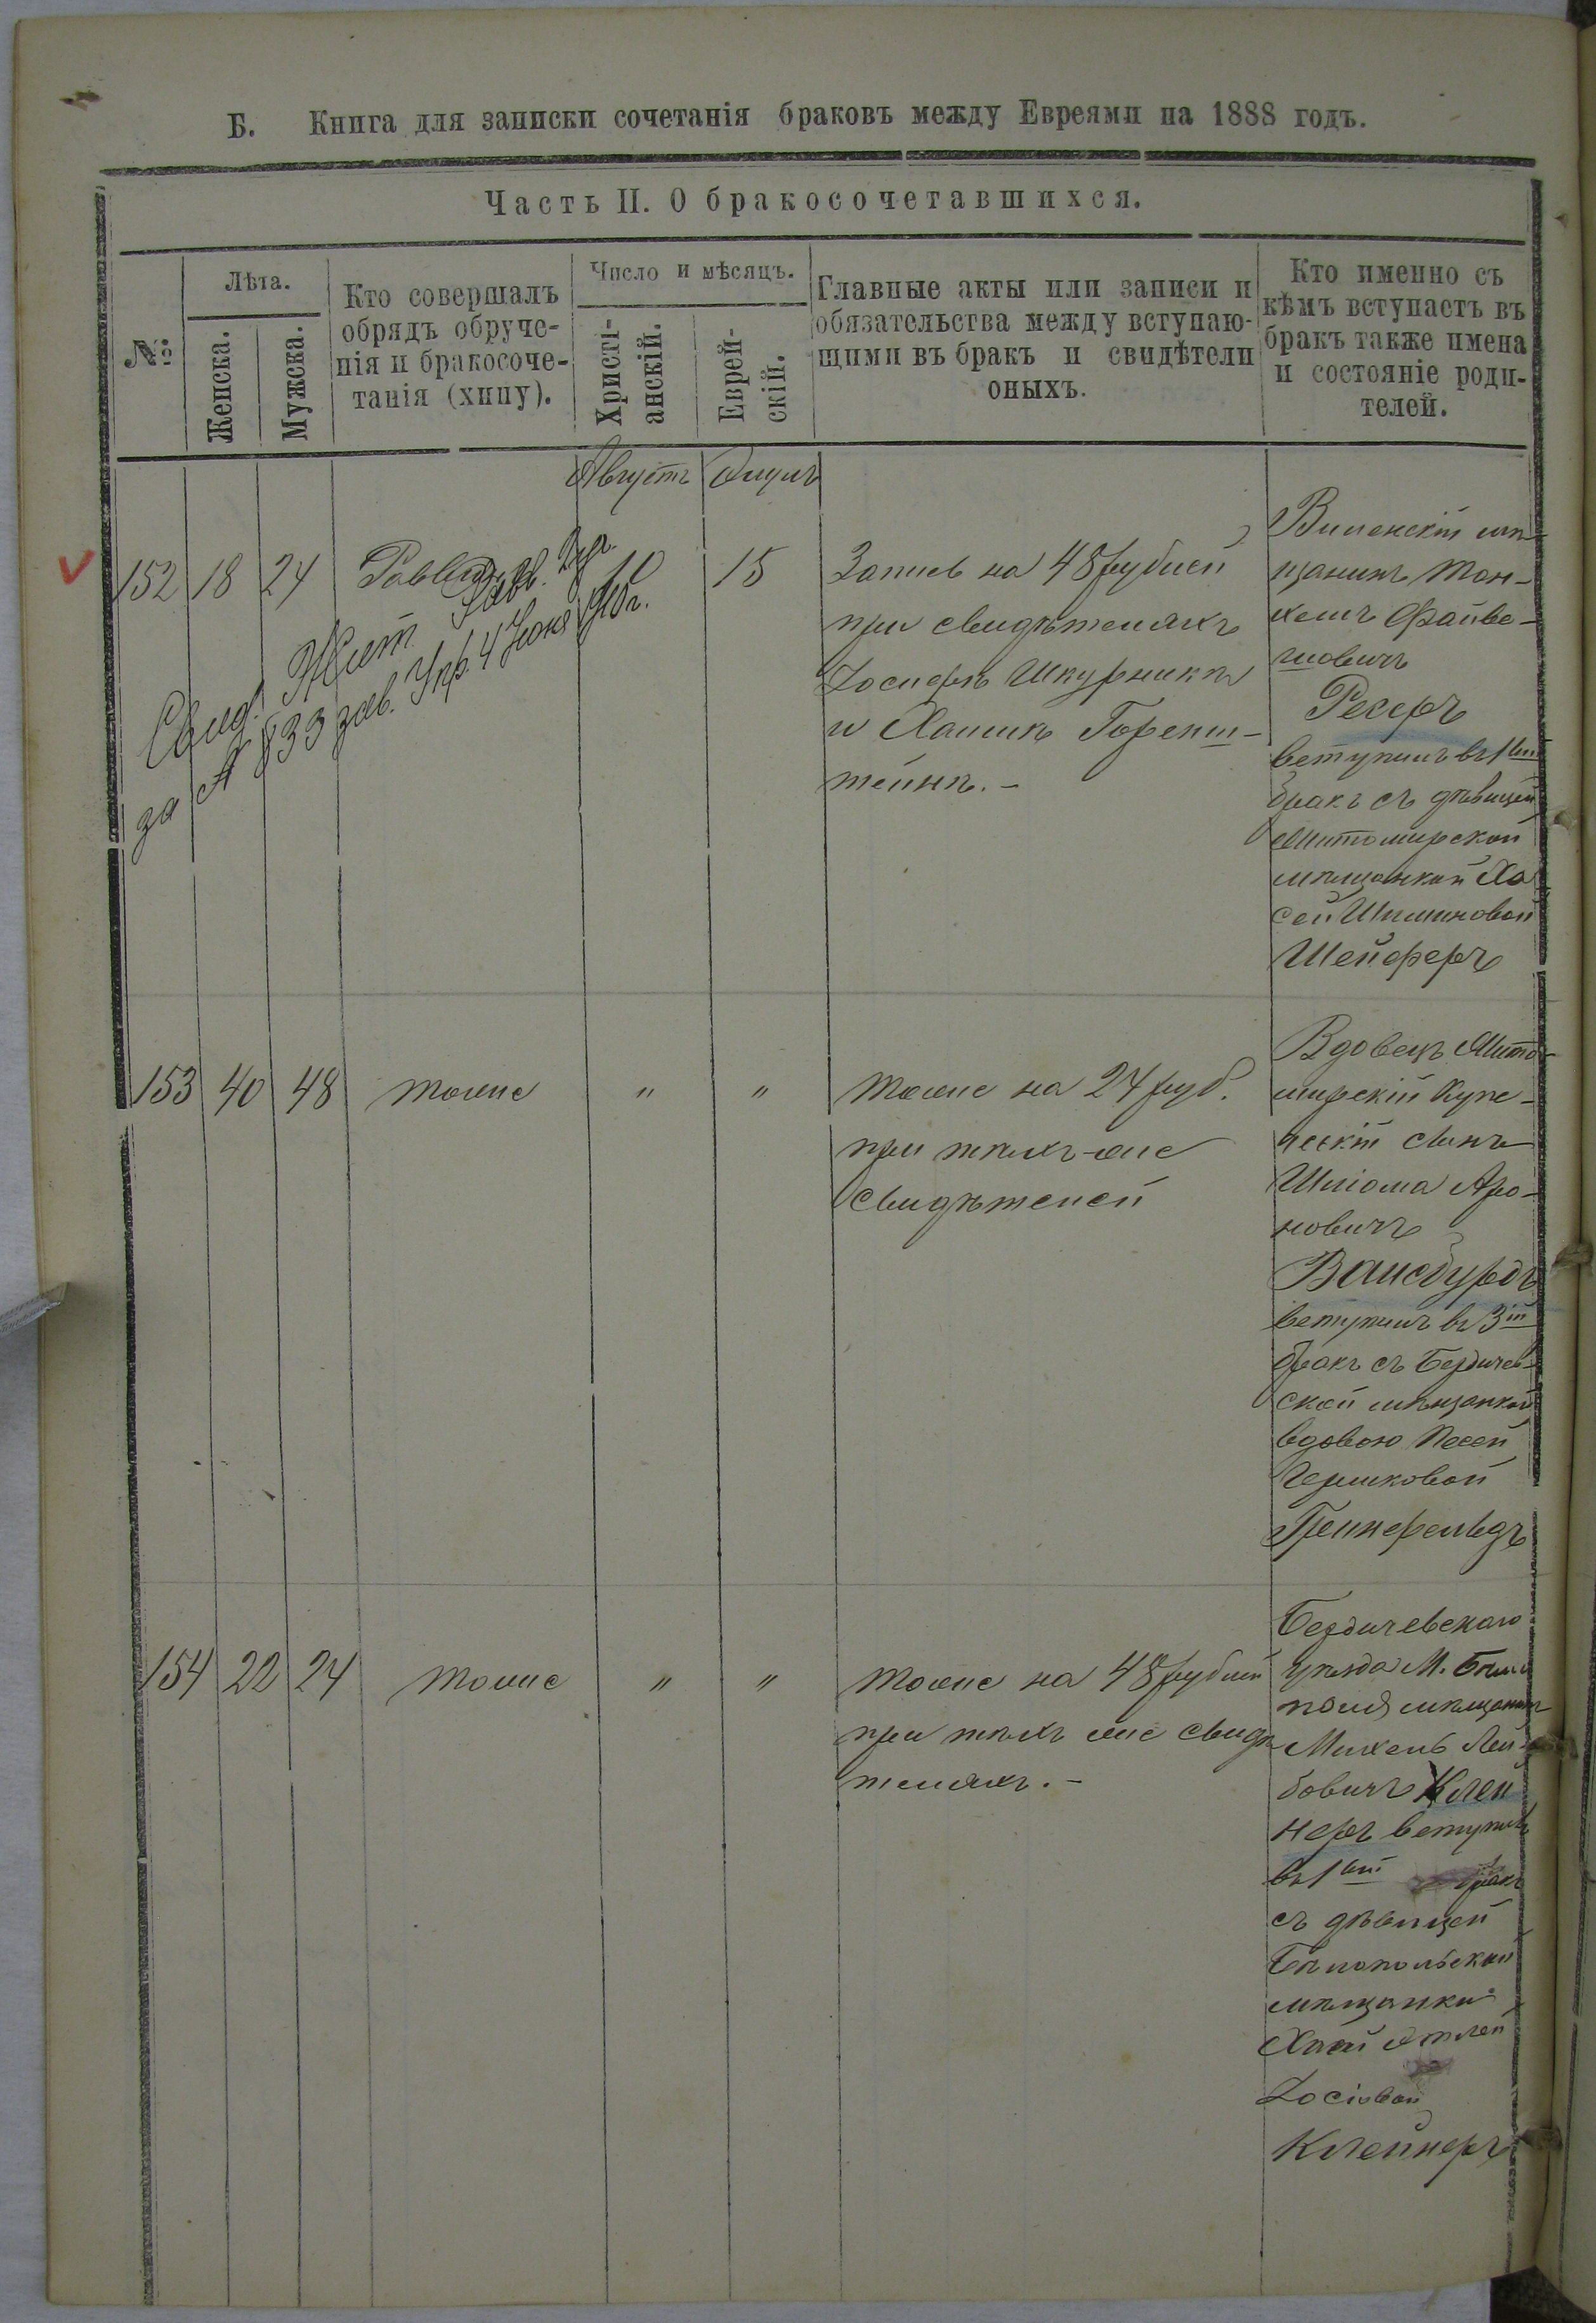 Б. Книга для записки сочетанія браковъ между Евреями на 1888 годъ.
Часть II. О бракосочетавшихся.
№
Лѣта.
Женска.
Мужска.
Кто совершалъ
обрядъ обруче-
нія и бракосоче-
танія (хипу).
Число и мѣсяцъ.
Христі-
анскій.
Еврей-
скій.
Главные акты или записи и
обязательства между вступаю-
щими въ бракъ и свидѣтели
оныхъ.
Кто именно съ
кѣмъ вступаетъ въ
бракъ также имена
и состояніе роди-
телей.
Августъ
152 18 24
10 15
Свид. Жит. Равв.
за № 833 зав. Упр. 4 Іюня
Запись на 48 рублей
при свидѣтеляхъ
Іосифъ Шкурникъ
и Хаимъ Горенш-
тейнъ.-
Виленскій мѣ-
щанинъ Тан-
хелъ Файве-
шовичъ
Песеръ
вступилъ въ 1ый
бракъ съ дѣвицей
Житомирской
мѣщанкой Ха
сей Шлимовой
Шейферъ
153 40 48 тоже " "
тоже на 24 руб.
при тѣхъ-же
свидѣтелей
Вдовецъ Жито-
мирскій Купе-
ческій сынъ
Шліома Аро-
новичъ
Вайсбурдъ
вступилъ въ 3ій
бракъ съ Бердичев-
ской мѣщанкой
вдовою Песей
Гершковой
Гринфельдъ
154 22 24 тоже " "
тоже на 48 рублей
при тѣхъ же свидѣ
теляхъ.-
Бердичевскаго
уѣзда М. Бѣло
поля мѣщанинъ
Михель Лей-
бовичъ Клей
неръ вступилъ
въ 1ый бракъ
съ дѣвицей
Бѣлопольской
мѣщанкой
Іосіовой
Клейнеръ